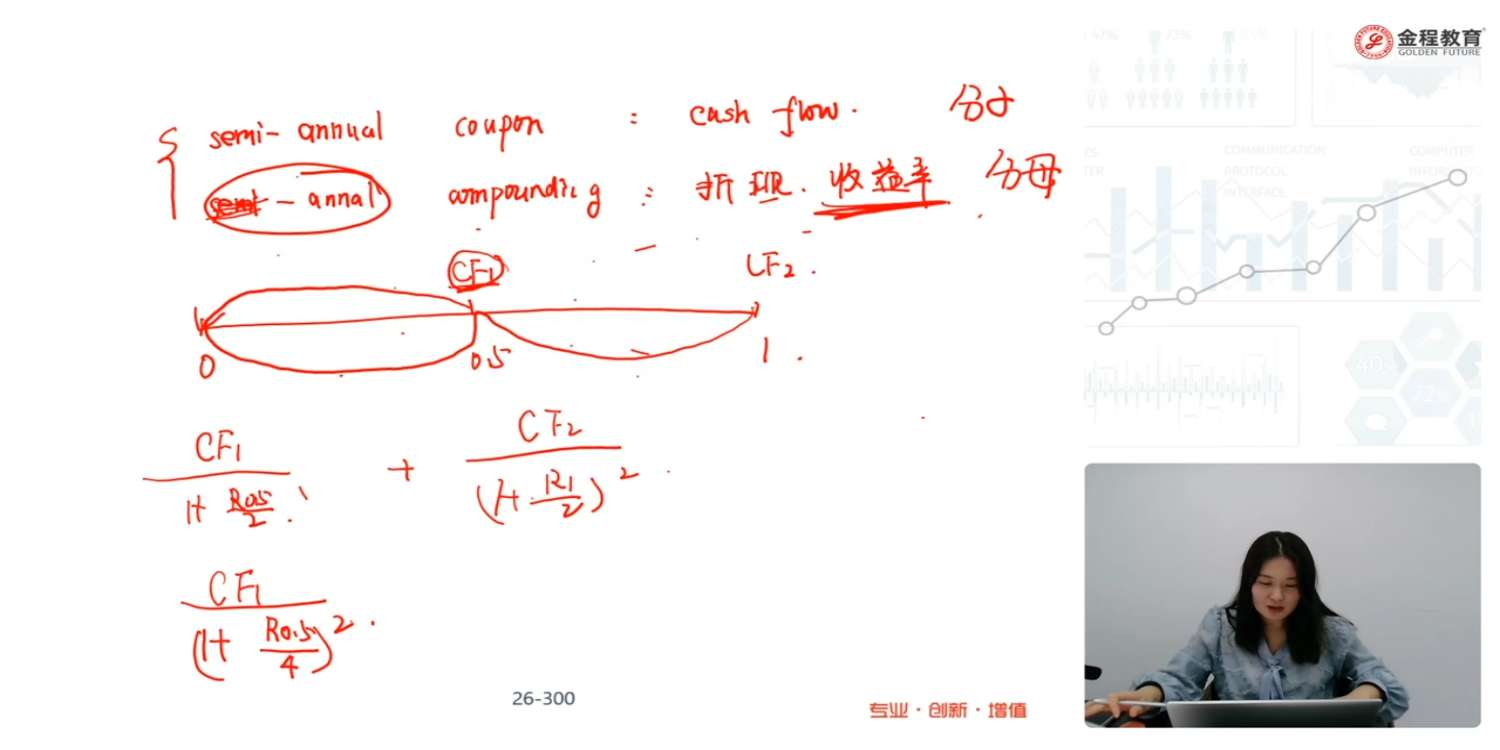 金程教育
GOLDEN FUTURE
semi-annual coupon : cash flow. 分子
semi-annal compounding : 折现. 收益率 分母
CF1 CF2.
0 0.5 1.
CF1 / 1+ R0.5/2 + CF2 / (1+ R1/2)^2
CF1 / (1+ R0.5/4)^2.
COMMUNICATION
PROTOCOL
INTERFACE
COMPUTER
26-300
专业·创新·增值